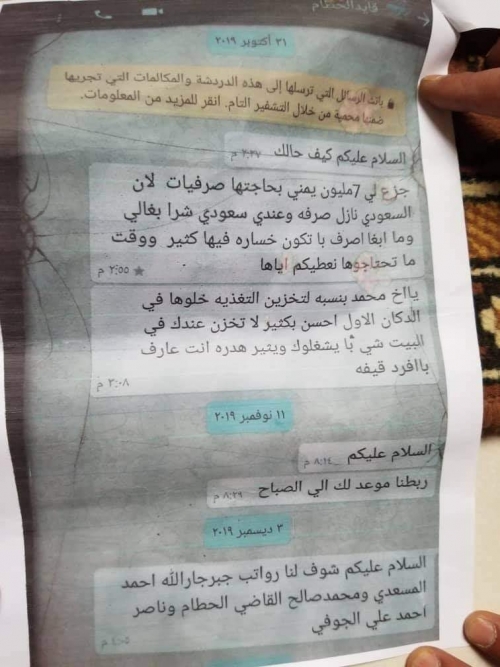 فايد الحطام
٣١ أكتوبر ٢٠١٩
باتت الرسائل التي ترسلها إلى هذه الدردشة والمكالمات التي تجريها
ضمنها محمية من خلال التشفير التام. انقر للمزيد من المعلومات.
السلام عليكم كيف حالك ٢:٢٧ م
جزع لي 7مليون يمني بحاجتها صرفيات لان
السعودي نازل صرفه وعندي سعودي شرا بغالي
وما ابغا اصرف با تكون خساره فيها كثير ووقت
ما تحتاجوها نعطيكم اياها
★ ٢:٥٥ م
يااخ محمد بنسبه لتخزين التغذيه خلوها في
الدكان الاول احسن بكثير لا تخزن عندك في
البيت شي با يشغلوك ويثير هدره انت عارف
باافرد قيفه
٣:٠٨ م
١١ نوفمبر ٢٠١٩
السلام عليكم ٨:١٤ م
ربطنا موعد لك الي الصباح ٨:٢٩ م
٣ ديسمبر ٢٠١٩
السلام عليكم شوف لنا رواتب جبرجارالله احمد
المسعدي ومحمدصالح القاضي الحطام وناصر
احمد علي الجوفي
٤:٠٥ م